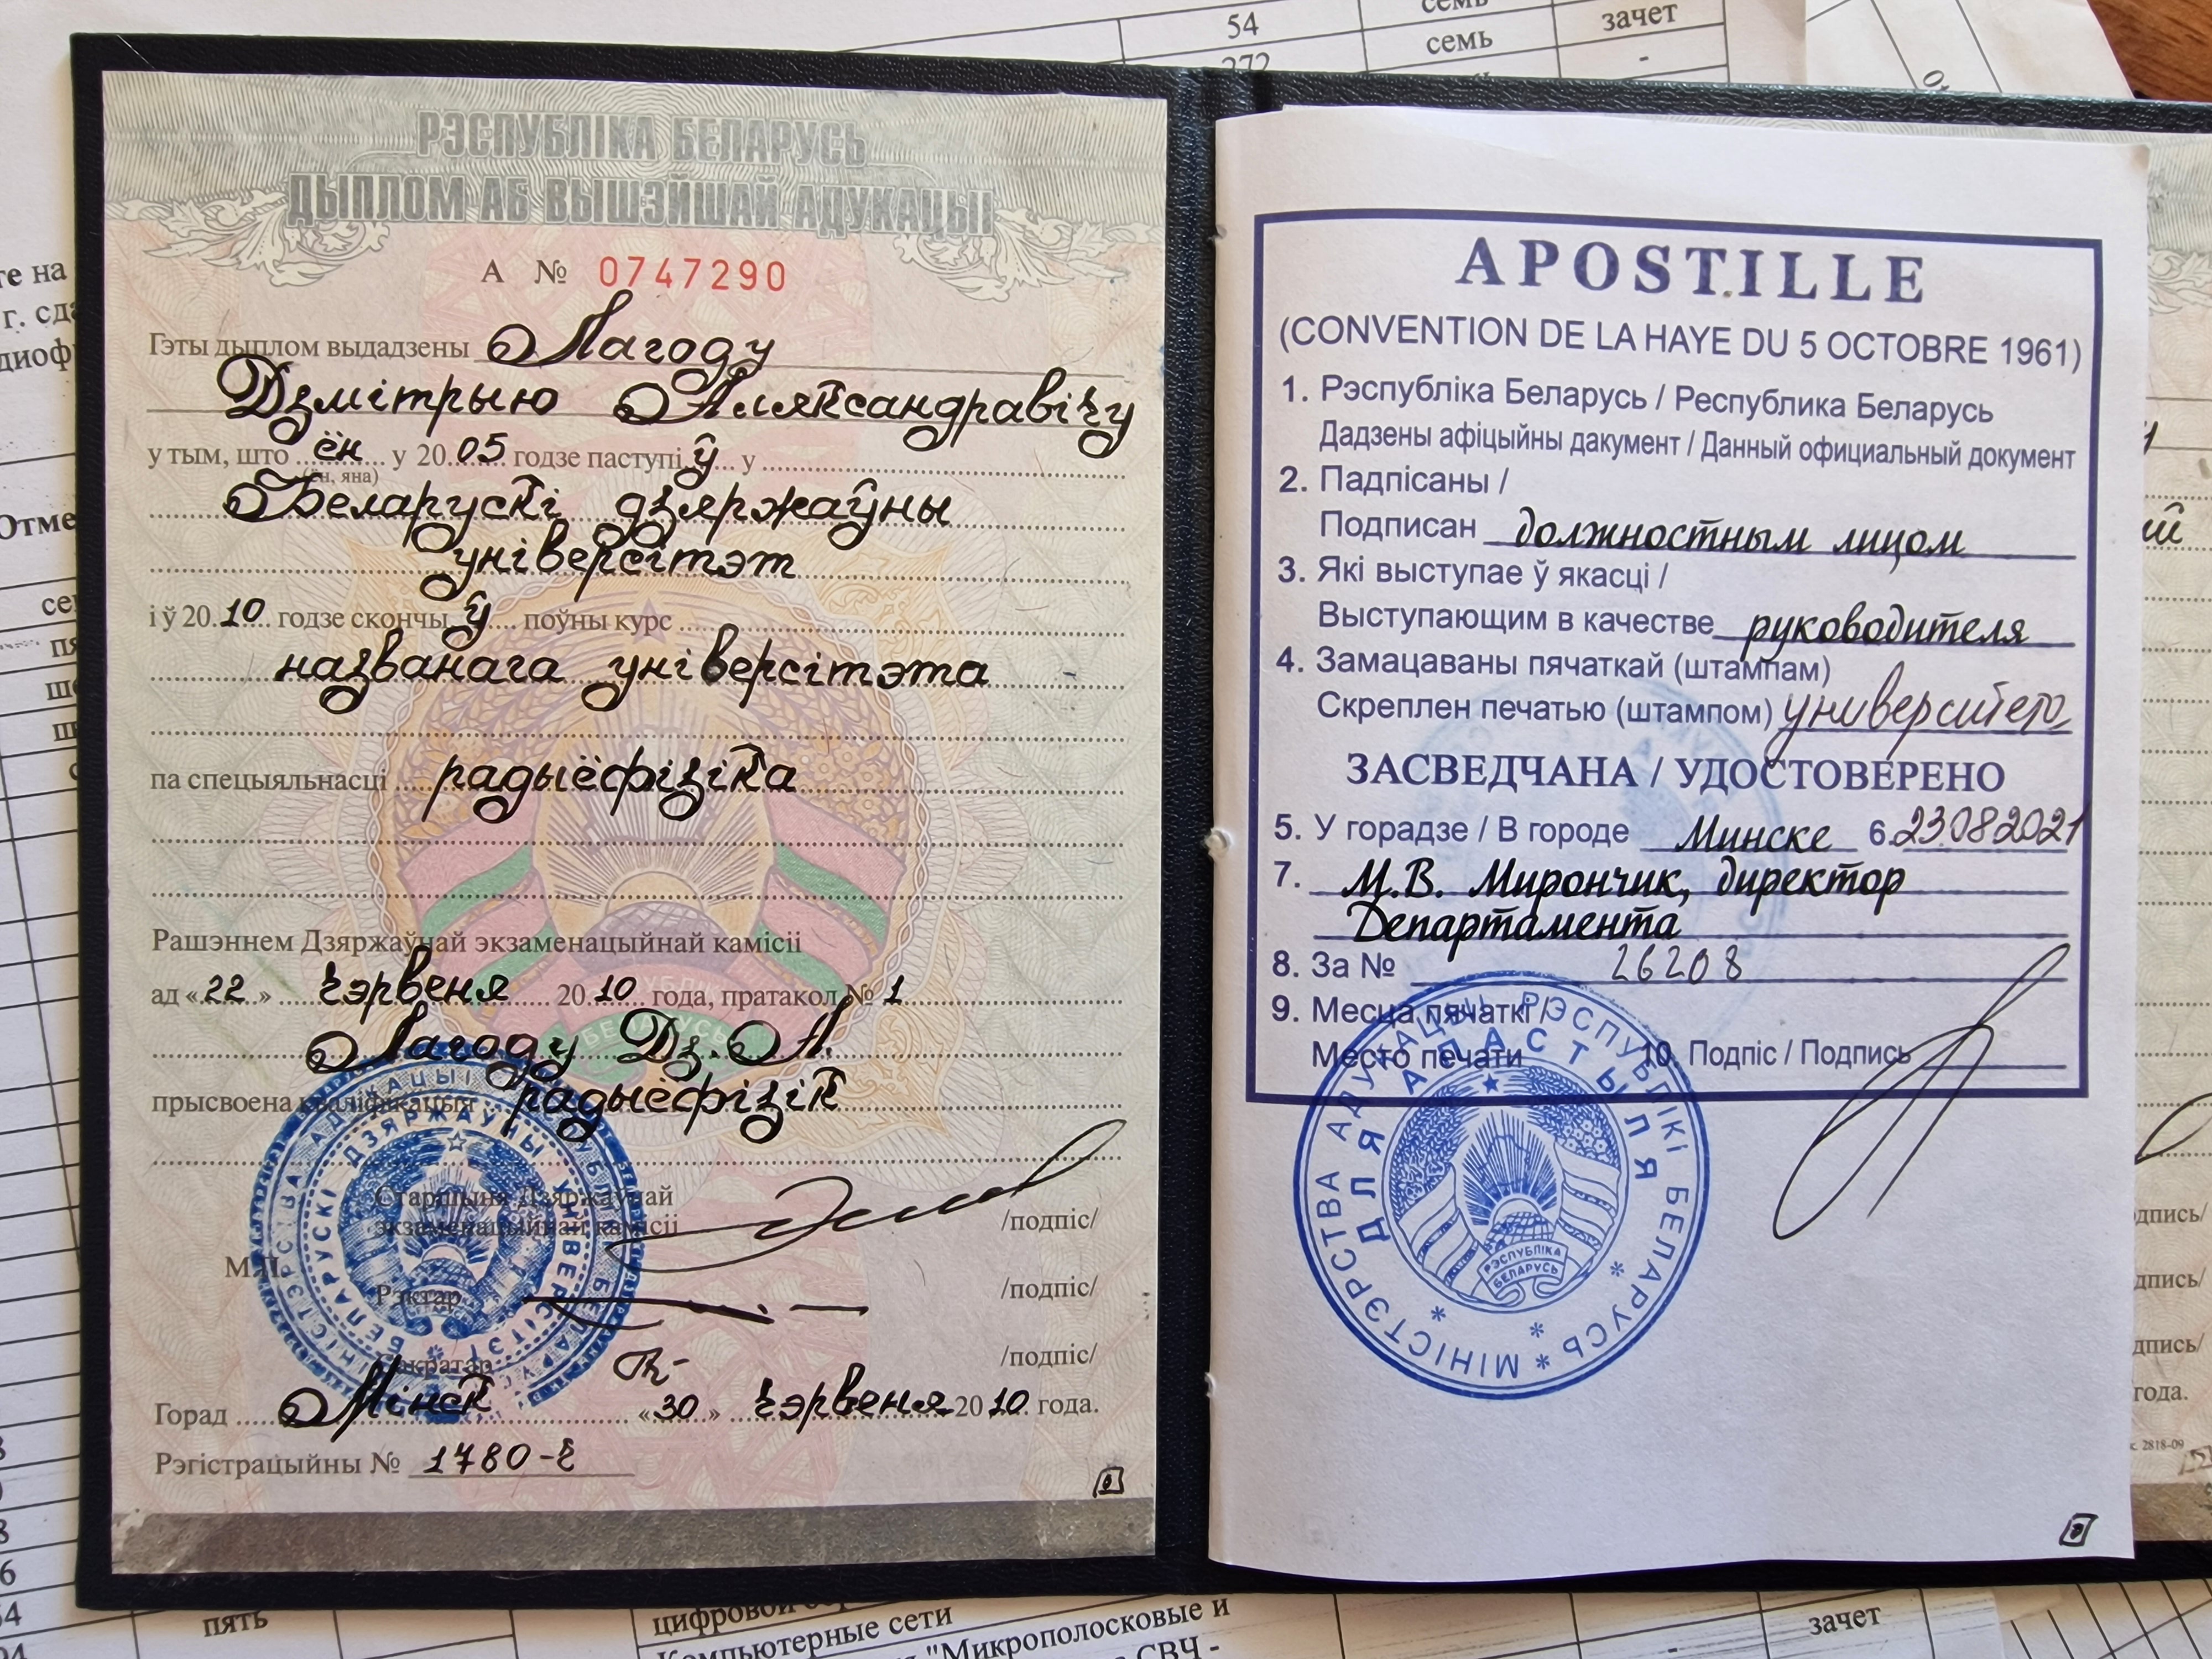 РЭСПУБЛІКА БЕЛАРУСЬ
ДЫПЛОМ АБ ВЫШЭЙШАЙ АДУКАЦЫІ
А № 0747290
Гэты дыплом выдадзены Лагоду
Дзмітрыю Аляксандравічу
у тым, што ён у 20 05 годзе паступіў у
(ён, яна)
Беларускі дзяржаўны
універсітэт
і ў 20 10 годзе скончыў поўны курс
названага універсітэта
па спецыяльнасці радыёфізіка
Рашэннем Дзяржаўнай экзаменацыйнай камісіі
ад « 22 » чэрвеня 20 10 года, пратакол № 1
Лагоду Дз. А.
прысвоена кваліфікацыя радыёфізік
Старшыня Дзяржаўнай
экзаменацыйнай камісіі /подпіс/
М.П.
Рэктар /подпіс/
Сакратар /подпіс/
Горад Мінск « 30 » чэрвеня 20 10 года.
Рэгістрацыйны № 1480-2
APOSTILLE
(CONVENTION DE LA HAYE DU 5 OCTOBRE 1961)
1. Рэспубліка Беларусь / Республика Беларусь
Дадзены афіцыйны дакумент / Данный официальный документ
2. Падпісаны /
Подписан должностным лицом
3. Які выступае ў якасці /
Выступающим в качестве руководителя
4. Замацаваны пячаткай (штампам)
Скреплен печатью (штампом) университет
ЗАСВЕДЧАНА / УДОСТОВЕРЕНО
5. У горадзе / В городе Минске 6. 23.08.2021
7. М.В. Мирончик, директор
Департамента
8. За № 26208
9. Месца пячаткі /
Место печати 10 Подпіс / Подпись
МІНІСТЭРСТВА АДУКАЦЫІ РЭСПУБЛІКІ БЕЛАРУСЬ
ДЛЯ АПАСТЫЛЯ
РЭСПУБЛІКА
БЕЛАРУСЬ
БЕЛАРУСКІ ДЗЯРЖАЎНЫ УНІВЕРСІТЭТ
зачет
цифровой
Компьютерные сети
"Микрополосковые и
СВЧ -
пять
54
семь
зачет
272
семь
-